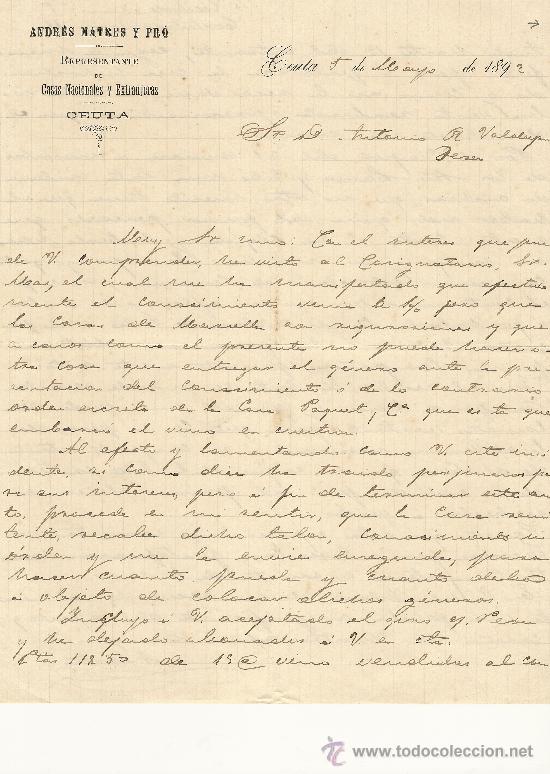 ANDRÉS MATRES Y PRÓ
REPRESENTANTE
DE
Casas Nacionales y Extranjeras
CEUTA
Ceuta 5 de Mayo de 1892
Sr. D. Antonio R.
Jerez
Muy Sr mio: Con el interes que
de V. comprender, he visto al Consignatario, Sr.
el cual me ha manifestado que efectiva
mente el conocimiento viene pero que
las Casas de Marsella son y que
a casos como el presente no puede hacer o
tra cosa que entregar el género ante la pre
sentacion del conocimiento ó de lo contrario
orden escrita de la Casa Paquet, Cª que es la que
embarcó el vino en cuestion.
Al efecto y lamentando como V. este inci
dente, si como dice ha
sus intereses, pero á fin de terminar este asun
to, procede en mi sentir, que la Casa remi
tente, recabe dicho talon, conocimiento u
órden y me la envie enseguida, para
hacer cuanto pueda y cuanto deba
á objeto de colocar dichos géneros.
Incluyo á V. aceptado el giro
y he dejado abonadas á V en cta.
Ptas 112.50 de 15 @ vino vendidas al con
www.todocoleccion.net